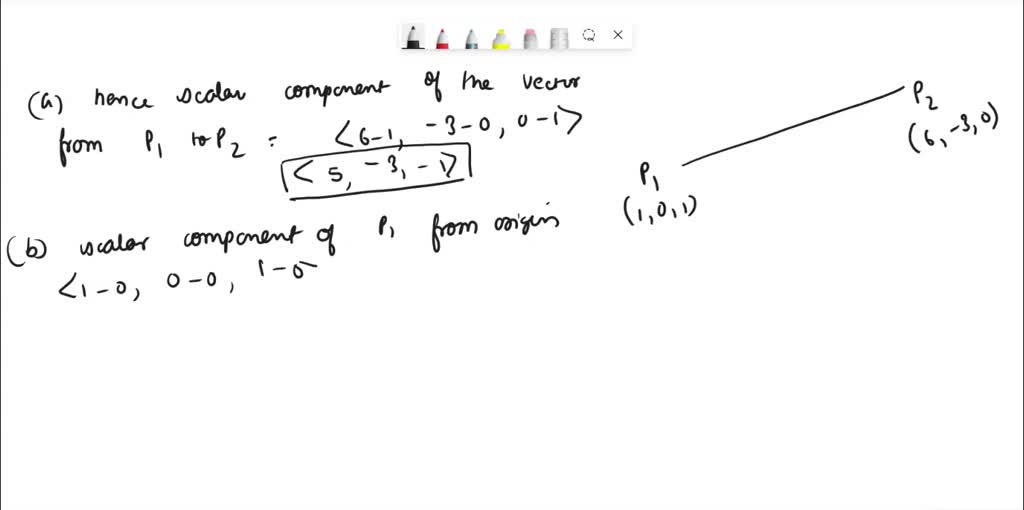 (a) hence scalar component of the vector
from P₁ to P₂ = <6-1, -3-0, 0-1>
<5, -3, -1>
P₂
(6, -3, 0)
P₁
(1, 0, 1)
(b) scalar component of P₁ from origin
<1-0, 0-0, 1-0